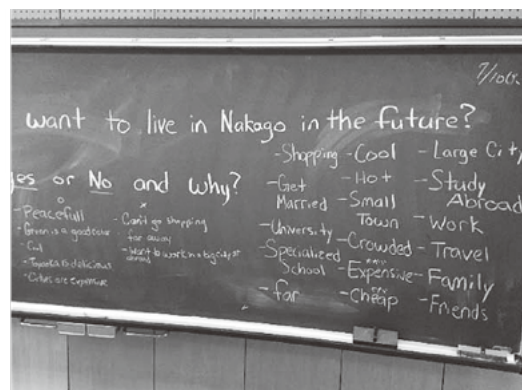 7/10
want to live in Nakago in the future?
yes or No and why?
- Peacefull
- Green is a good color
- Cool
- delicious
- Cities are expensive
- Can't go shopping
far away
- Want to work in a big city or
abroad
- Shopping
- Get
Married
- University
- Specialized
School
- far
- Cool
- Hot
- Small
Town
- Crowded
- Expensive
- Cheap
- Large City
- Study
Abroad
- Work
- Travel
- Family
- Friends